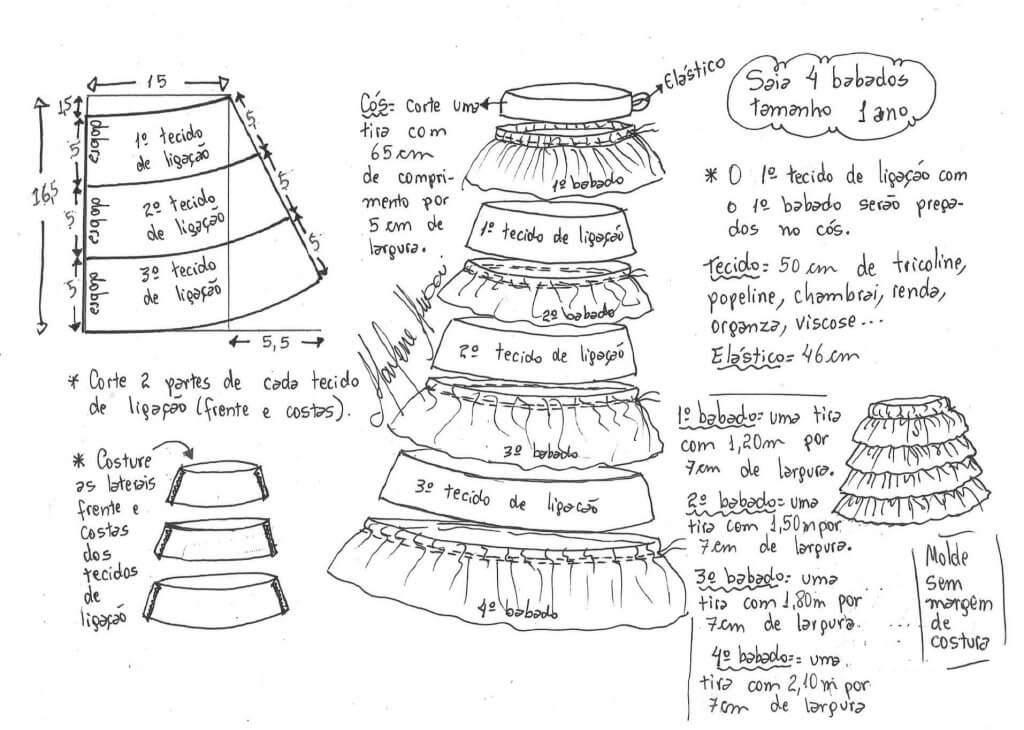 15
1,5
16,5
5
5
5
5
5
5
5,5
dobra
dobra
dobra
1º tecido
de ligação
2º tecido
de ligação
3º tecido
de ligação
* Corte 2 partes de cada tecido
de ligação (frente e costas).
* Costure
as laterais
frente e
costas
dos
tecidos
de
ligação
Cós= corte uma
tira com
65 cm
de compri-
mento por
5 cm de
largura.
Elástico
1º babado
1º tecido de ligação
2º babado
2º tecido de ligação
3º babado
3º tecido de ligação
4º babado
Marlene
Saia 4 babados
tamanho 1 ano
* O 1º tecido de ligação com
o 1º babado serão prega-
dos no cós.
Tecido= 50 cm de tricoline,
popeline, chambrai, renda,
organza, viscose...
Elástico= 46 cm
1º babado= uma tira
com 1,20m por
7cm de largura.
2º babado= uma
tira com 1,50m por
7cm de largura.
3º babado= uma
tira com 1,80m por
7cm de largura.
4º babado= uma
tira com 2,10m por
7cm de largura
Molde
sem
margem
de
costura